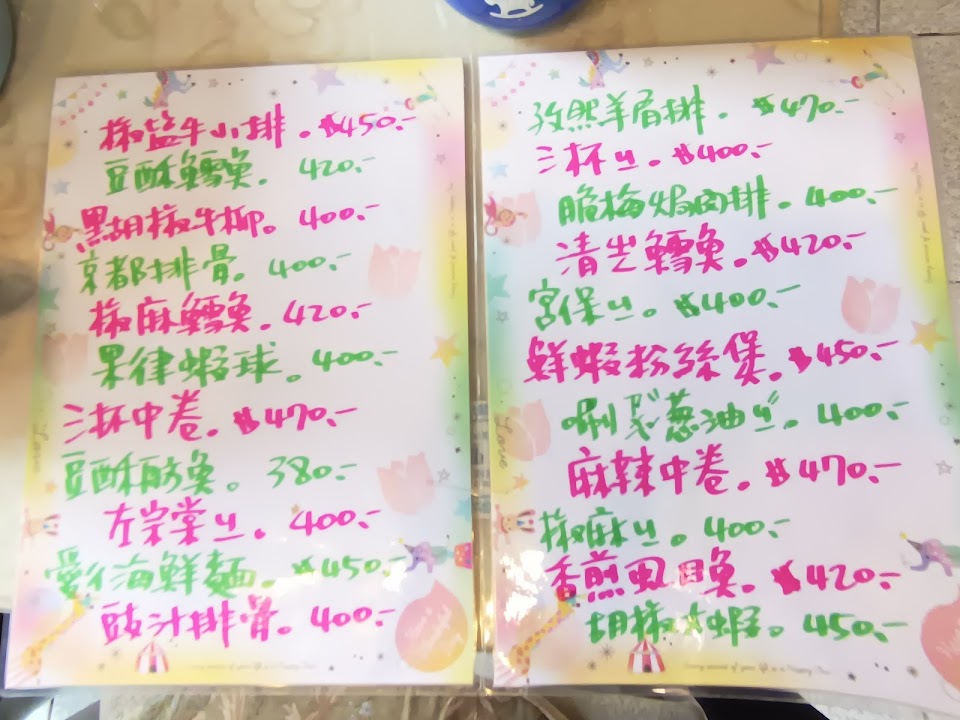 椒盐牛小排。$450.-
豆酥鱈魚. 420.-
黑胡椒牛柳。400.-
京都排骨。400.-
椒麻鱈魚. 420.-
果律蝦球。400.-
三杯中卷。$470.-
豆酥魴魚。380.-
左宗棠ㄐ。400.-
海鮮麵。$450.-
豉汁排骨。400.-
孜然羊肩排. $470.-
三杯ㄐ. $400.-
脆梅焗肉排. 400.-
清蒸鱈魚。$420.-
宮保ㄐ. $400.-
鮮蝦粉絲煲。$450.-
葱油ㄐ. 400.-
麻辣中卷. $470.-
椒麻ㄐ. 400.-
香煎魚. $420.-
胡椒蝦。450.-
Love
Love